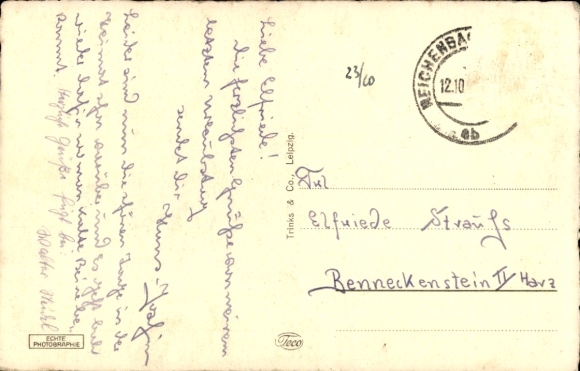 Liebe Elfriede!
Die herzlichsten Grüße von meinem
letzten Urlaubstag
sendet dir
Hans-Joachim
Leider sind nun die schönen Tage in der
Heimat schon vorüber und es geht bald
wieder
kommt. Herzliche Grüße fügt bei
Walter
23/60
REICHENBA
12.10
eb
Trinks & Co., Leipzig.
Frl
Elfriede Straufs
Benneckenstein II Harz
ECHTE
PHOTOGRAPHIE
Teco